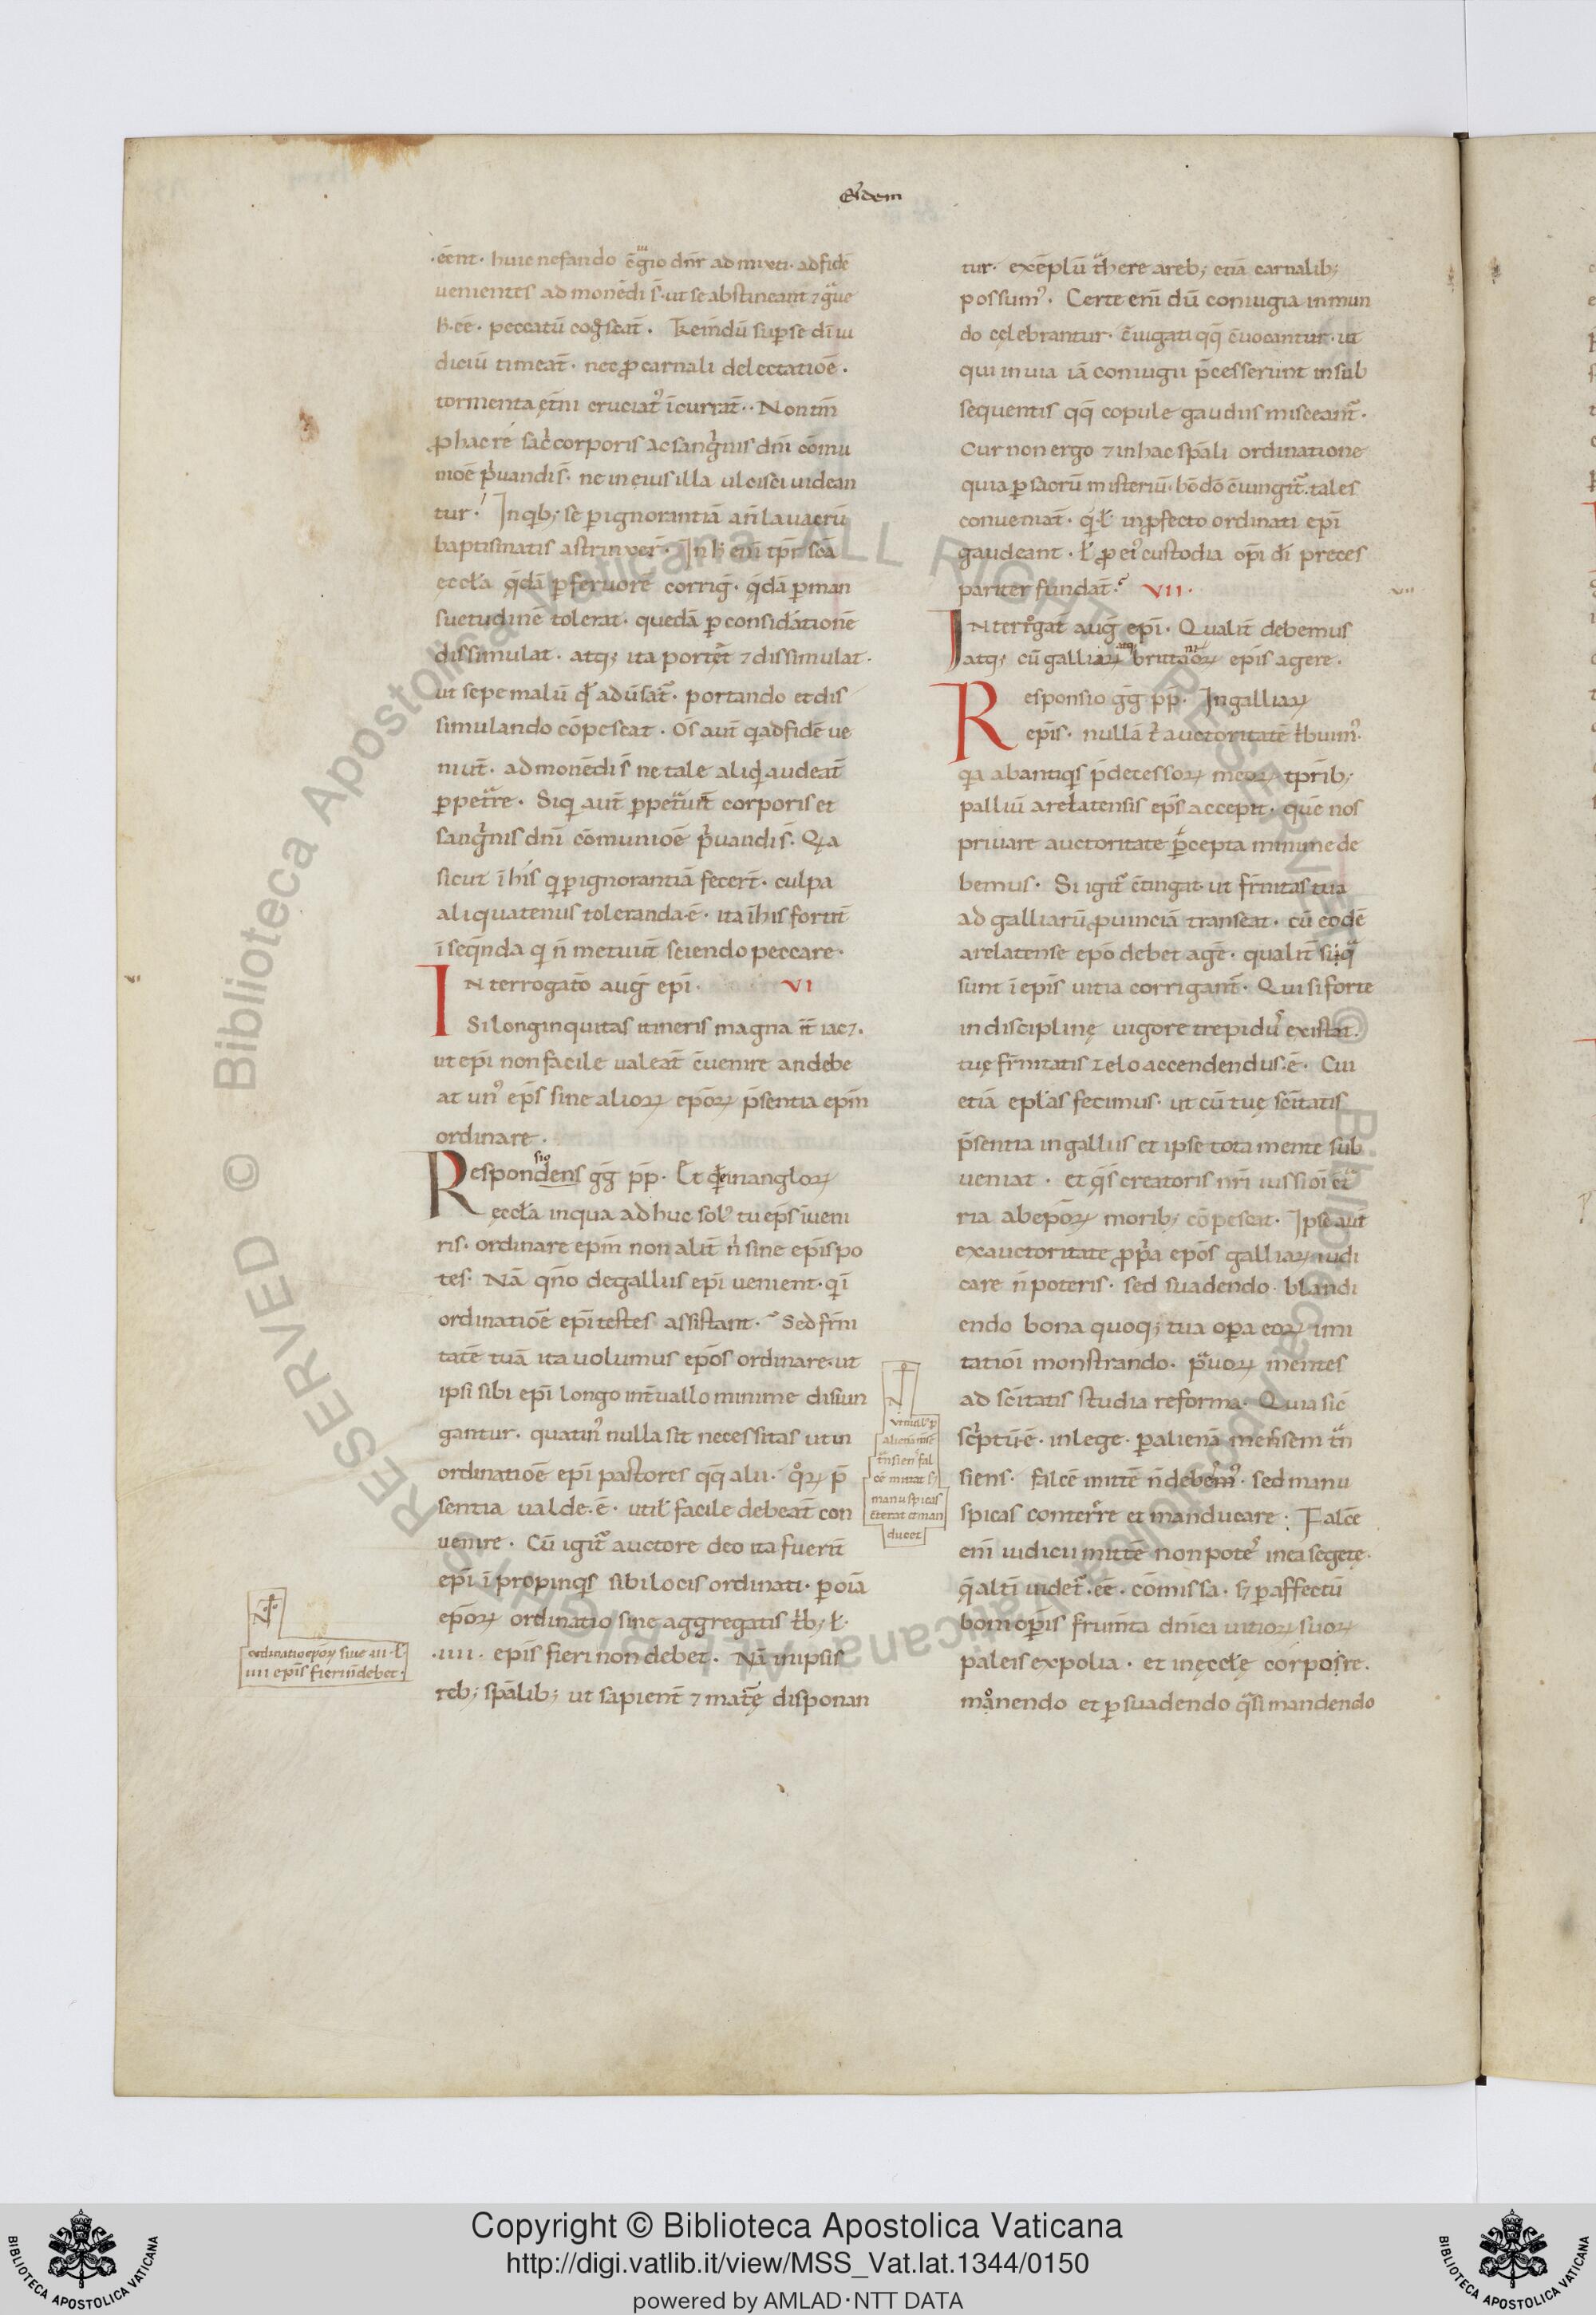 Eidem
·eent· huic nefando c̄giō dn̄r ad mixti· ad fidē
uenientes ad monēdi s̄· ut se abstineant ⁊ gue
h·ee· peccatū cog̃scāt. Tremdū sup se dī iu
diciū timeāt· nec ꝓ carnali delectatiōe·
tormenta ęt̄ni cruciat᷒ īcurrāt·· Non tm̄
ꝓ hac re sac̄ corporis ac sang̃nis dn̄i cōmu
nioē p̃uandi s̄· ne in eius illa ulcisci uidean
tur· In qb; se ꝑ ignorantiā an̄ lauacrū
baptismatis astrinxer̄· In h̄ eni tp̄r sc̄a
eccła q̇dā ꝑ feruorē corrig̃· q̇dā ꝑ man
suetudinē tolerat· quedā ꝑ considātionē
dissimulat· atq; ita portet ⁊ dissimulat·
ut sepe malū qđ adūsat̃· portando et dis
simulando cōpescat· Os̄ aut̄ q ad fidē ue
niut̄· ad monēdi s̄ ne tale aliq̇ audeat̄
ꝑpetre· Siq̇ aut̄ ꝑpetuit̄ corporis et
sang̃nis dn̄i cōmunioē p̃uandi s̄· Qa
sicut ī his q ꝑ ignorantiā fecert̄· culpa
aliquatenus toleranda·ē· ita ī his fortit̄
ī seq̄nda q n̄ metuūt sciendo peccare·
Nterrogatō aug̃ ep̄i· VI
Si longinquitas itineris magna int̄ iac⁊·
ut ep̄i non facile ualeat̄ c̄uenire an debe
at un᷒ ep̄s sine alioꝝ ep̄oꝝ p̄sentia ep̄m
ordinare·
Respondens sio g̃g p̄p· Et qdē in angloꝝ
ęccła in qua ad huc sol᷒ tu ep̄s īueni
ris· ordinare ep̄m non alit̄ n̄ sine ep̄is po
tes· Nā qn̄o de gallus ep̄i uenient· q̇ ī
ordinatiōe ep̄i testes assistant· Sed fr̄ni
tatē tuā ita uolumus ep̄os ordinare· ut
ipsi sibi ep̄i longo int̄uallo minime disiun
gantur· quatin᷒ nulla sit necessitas ut in
ordinatiōe ep̄i pastores qq̄ alii· q̊ꝝ p̄
sentia ualde·ē· utił facile debeat̄ con
uenire· Cū igit̃ auctore deo ita fuerit̄
ep̄i ī propinqs̄ sibi locis ordinati· ꝑ oīa
ep̄oꝝ ordinatio sine aggregatis tb; ł·
·iiii· ep̄is fieri non debet· Nā in ipsis
reb; sp̄alib; ut sapient̄ ⁊ matę̄ disponan
N
ordinatio ep̄oꝝ sine iii·ł
iiii ep̄is fieri n̄ debet·
N
ut null᷒ ꝑ
alienā mese
t̃nsiens fal
cē mittat s;
manu spicas
c̄terat et man
ducet
tur· exēplū t̃here a reb; etiā carnalib;
possum᷒· Certe em̄ dū coniugia in mun
do cęlebrantur· c̄iugati qq̄ c̄uocantur· ut
qui in uia iā coniugii p̄cesserunt in sub
sequentis qq̄ copule gaudiis misceant̃·
Cur non ergo ⁊ in hac sp̄ali ordinatione
quia ꝑ sacrū misteriū· ho dō c̄iungit̃· tales
conueniat̄· q̇ ł in ꝓfecto ordinati ep̄i
gaudeant· ł ꝓ ei᷒ custodia op̄i di preces
pariter fundat̄· VII·
INterr̊gat̄ aug̃ ep̄i· Qualit̄ debemus
atq; cū galliaꝝ atq; brittanoꝝ ep̄is agere·
Responsio g̃g p̄p· In galliaꝝ
ep̄is· nullā t̄ auctoritatē tbuim᷒·
qa ab antiqs̄ p̄decessoꝝ meoꝝ tp̄rib;
palliū arełatensis ep̄s accepit· quē nos
priuare auctoritate p̄cepta minime de
bemus· Si igit̃ c̄tingat· ut fr̄nitas tua
ad galliarū ꝓuinciā transeat· cū eodē
arelatense ep̄o debet agē· qualit̄ siq̃
sunt ī ep̄is uitia corrigant̃· Qui si forte
in disciplinę uigore trepidus existat·
tuę fr̄nitatis zelo accendendus·ē· Cui
etiā epłas fecimus· ut cū tuę sc̄itatis
p̄sentia in gallus et ipse tota mente sub
ueniat· et q̄s creatoris nr̄i iussioī c̄t̃
ria ab ep̄oꝝ morib; cōpescat· Ipse aut̄
ex auctoritate ꝓp̄a ep̄os galliaꝝ iudi
care n̄ poteris· sed suadendo· blandi
endo bona quoq; tua opa eoꝝ imi
tatioī monstrando· p̃uoꝝ mentes
ad sc̄itatis studia reforma· Quia sic
sc̄ptū·ē· in lege· ꝑ alienā messem t̃n
siens· falcē mittē n̄ debem᷒· sed manu
spicas conterre et manducare· Falcē
em̄ iudicii mittē non pote᷒ in ea segete·
q̄ alt̄i uidet̃·eē· cōmissa· s; ꝑ affectū
boni opis frum̄ta dn̄ica uitioꝝ suoꝝ
paleis expolia· et in ęccłę corpore·
mo̊nendo et ꝑ suadendo q̃si mandendo
VII
VI
Copyright © Biblioteca Apostolica Vaticana
http://digi.vatlib.it/view/MSS_Vat.lat.1344/0150
powered by AMLAD·NTT DATA
BIBLIOTECA APOSTOLICA VATICANA
BIBLIOTECA APOSTOLICA VATICANA
© Biblioteca Apostolica Vaticana ALL RIGHTS RESERVED
© Biblioteca Apostolica Vaticana ALL RIGHTS RESERVED